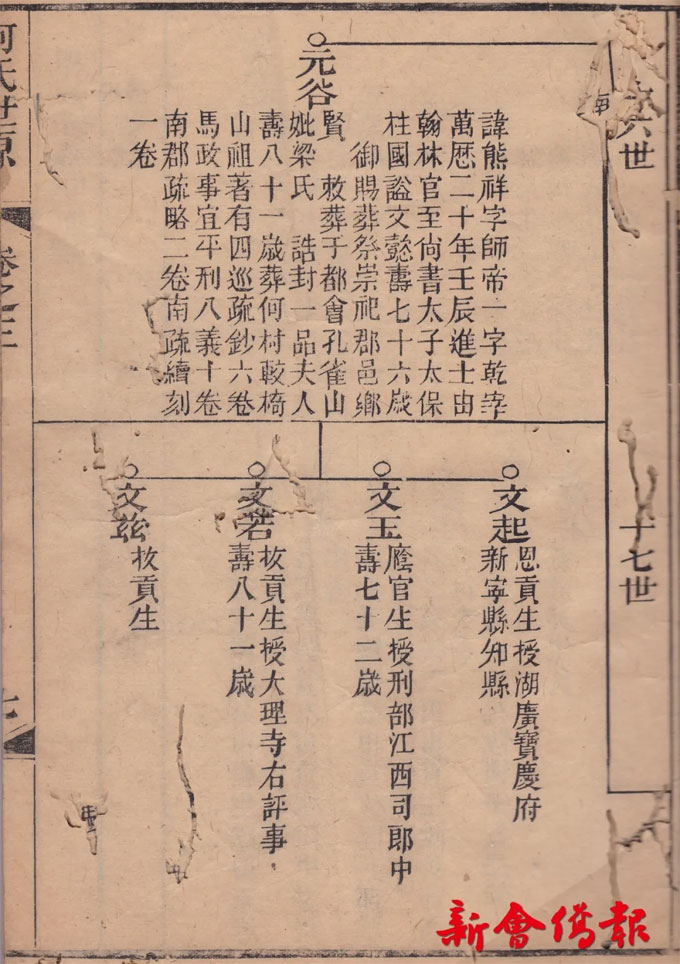 六世
元谷
諱熊祥字師帝一字乾宰
萬厯二十年壬辰進士由
翰林官至尚書太子太保
柱國謚文懿壽七十六歲
御賜葬祭崇祀郡邑鄉
賢 敕葬于都會孔雀山
妣梁氏 誥封一品夫人
壽八十一歲葬何村較椅
山祖著有四巡疏鈔六卷
馬政事宜平刑八義十卷
南郡疏略二卷南疏續刻
一卷
十七世
文起
恩貢生授湖廣寶慶府
新寧縣知縣
文玉
廕官生授刑部江西司郎中
壽七十二歲
文若
拔貢生授大理寺右評事
壽八十一歲
文茲
拔貢生
何氏世原
卷之三
新會僑報